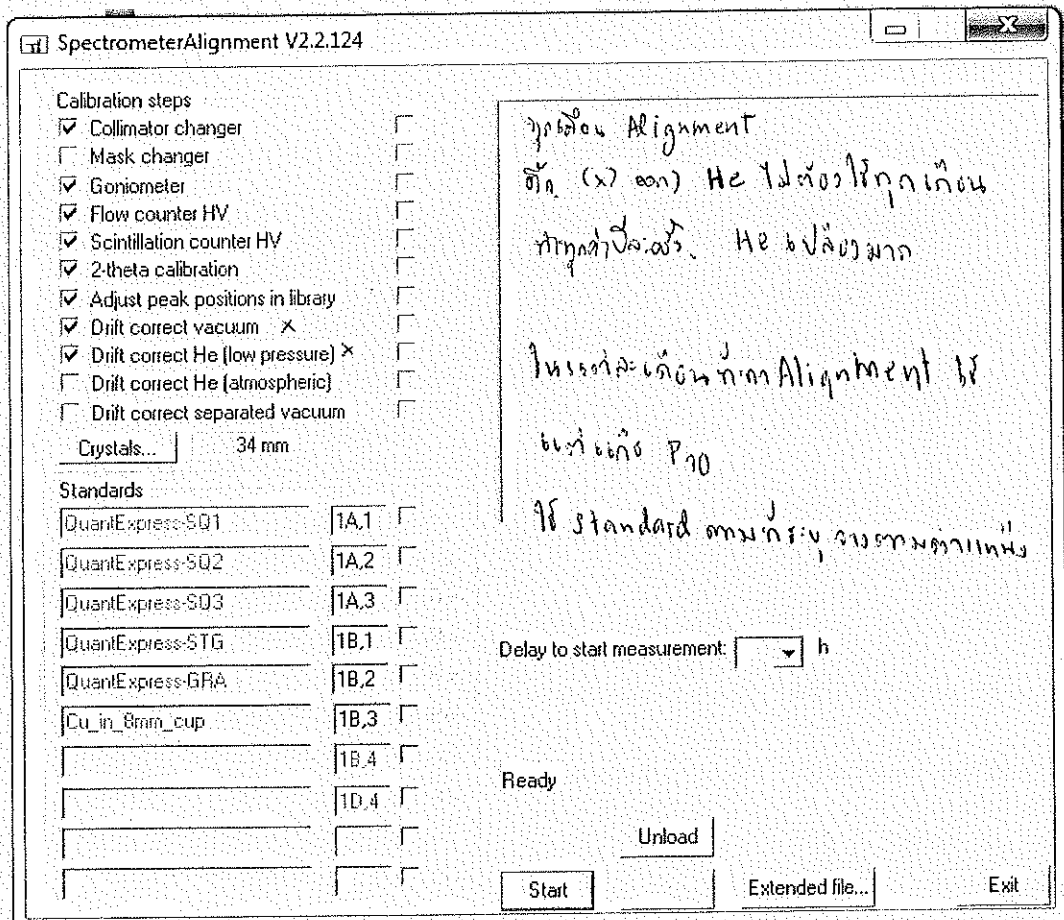 SpectrometerAlignment V2.2.124
Calibration steps
Collimator changer
Mask changer
Goniometer
Flow counter HV
Scintillation counter HV
2-theta calibration
Adjust peak positions in library
Drift correct vacuum x
Drift correct He (low pressure) x
Drift correct He (atmospheric)
Drift correct separated vacuum
Crystals... 34 mm
Standards
QuantExpress-SQ1 1A,1
QuantExpress-SQ2 1A,2
QuantExpress-SQ3 1A,3
QuantExpress-STG 1B,1
QuantExpress-GRA 1B,2
Cu_in_8mm_cup 1B,3
1B,4
1D,4
ทุกเดือน Alignment
ติ๊ก (x) ออก) He ไม่ต้องใช้ทุกเดือน
He เปลืองมาก
ในแต่ละเดือนที่ทำ Alignment ใช้
แต่แก๊ส P10
ใช้ standard ตามที่ระบุ วางตามตำแหน่ง
Delay to start measurement: h
Ready
Unload
Start Extended file... Exit